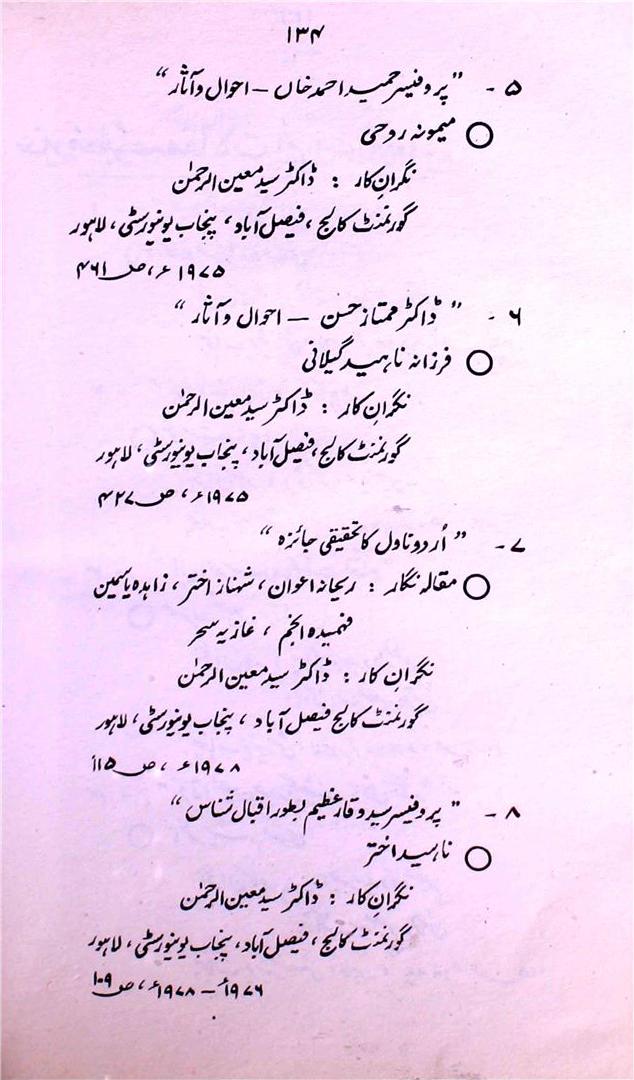 ۱۳۴
۵ - " پروفیسر حمید احمد خاں – احوال و آثار "
میمونہ روحی
نگرانِ کار : ڈاکٹر سید معین الرحمٰن
گورنمنٹ کالج ، فیصل آباد ، پنجاب یونیورسٹی ، لاہور
۱۹۷۵ء ، ص ۴۶۱
۶ - " ڈاکٹر ممتاز حسن – احوال و آثار "
فرزانہ ناہید گیلانی
نگرانِ کار : ڈاکٹر سید معین الرحمٰن
گورنمنٹ کالج ، فیصل آباد ، پنجاب یونیورسٹی ، لاہور
۱۹۷۵ء ، ص ۴۲۷
۷ - " اُردو ناول کا تحقیقی جائزہ "
مقالہ نگار : ریحانہ اعوان ، شہناز اختر ، زاہدہ یاسمین
فہمیدہ انجم ، غازیہ سحر
نگرانِ کار : ڈاکٹر سید معین الرحمٰن
گورنمنٹ کالج فیصل آباد ، پنجاب یونیورسٹی ، لاہور
۱۹۷۸ء ، ص ۱۱۵
۸ - " پروفیسر سید وقار عظیم بطور اقبال شناس "
ناہید اختر
نگرانِ کار : ڈاکٹر سید معین الرحمٰن
گورنمنٹ کالج ، فیصل آباد ، پنجاب یونیورسٹی ، لاہور
۱۹۷۶ء – ۱۹۷۸ء ، ص ۱۰۹